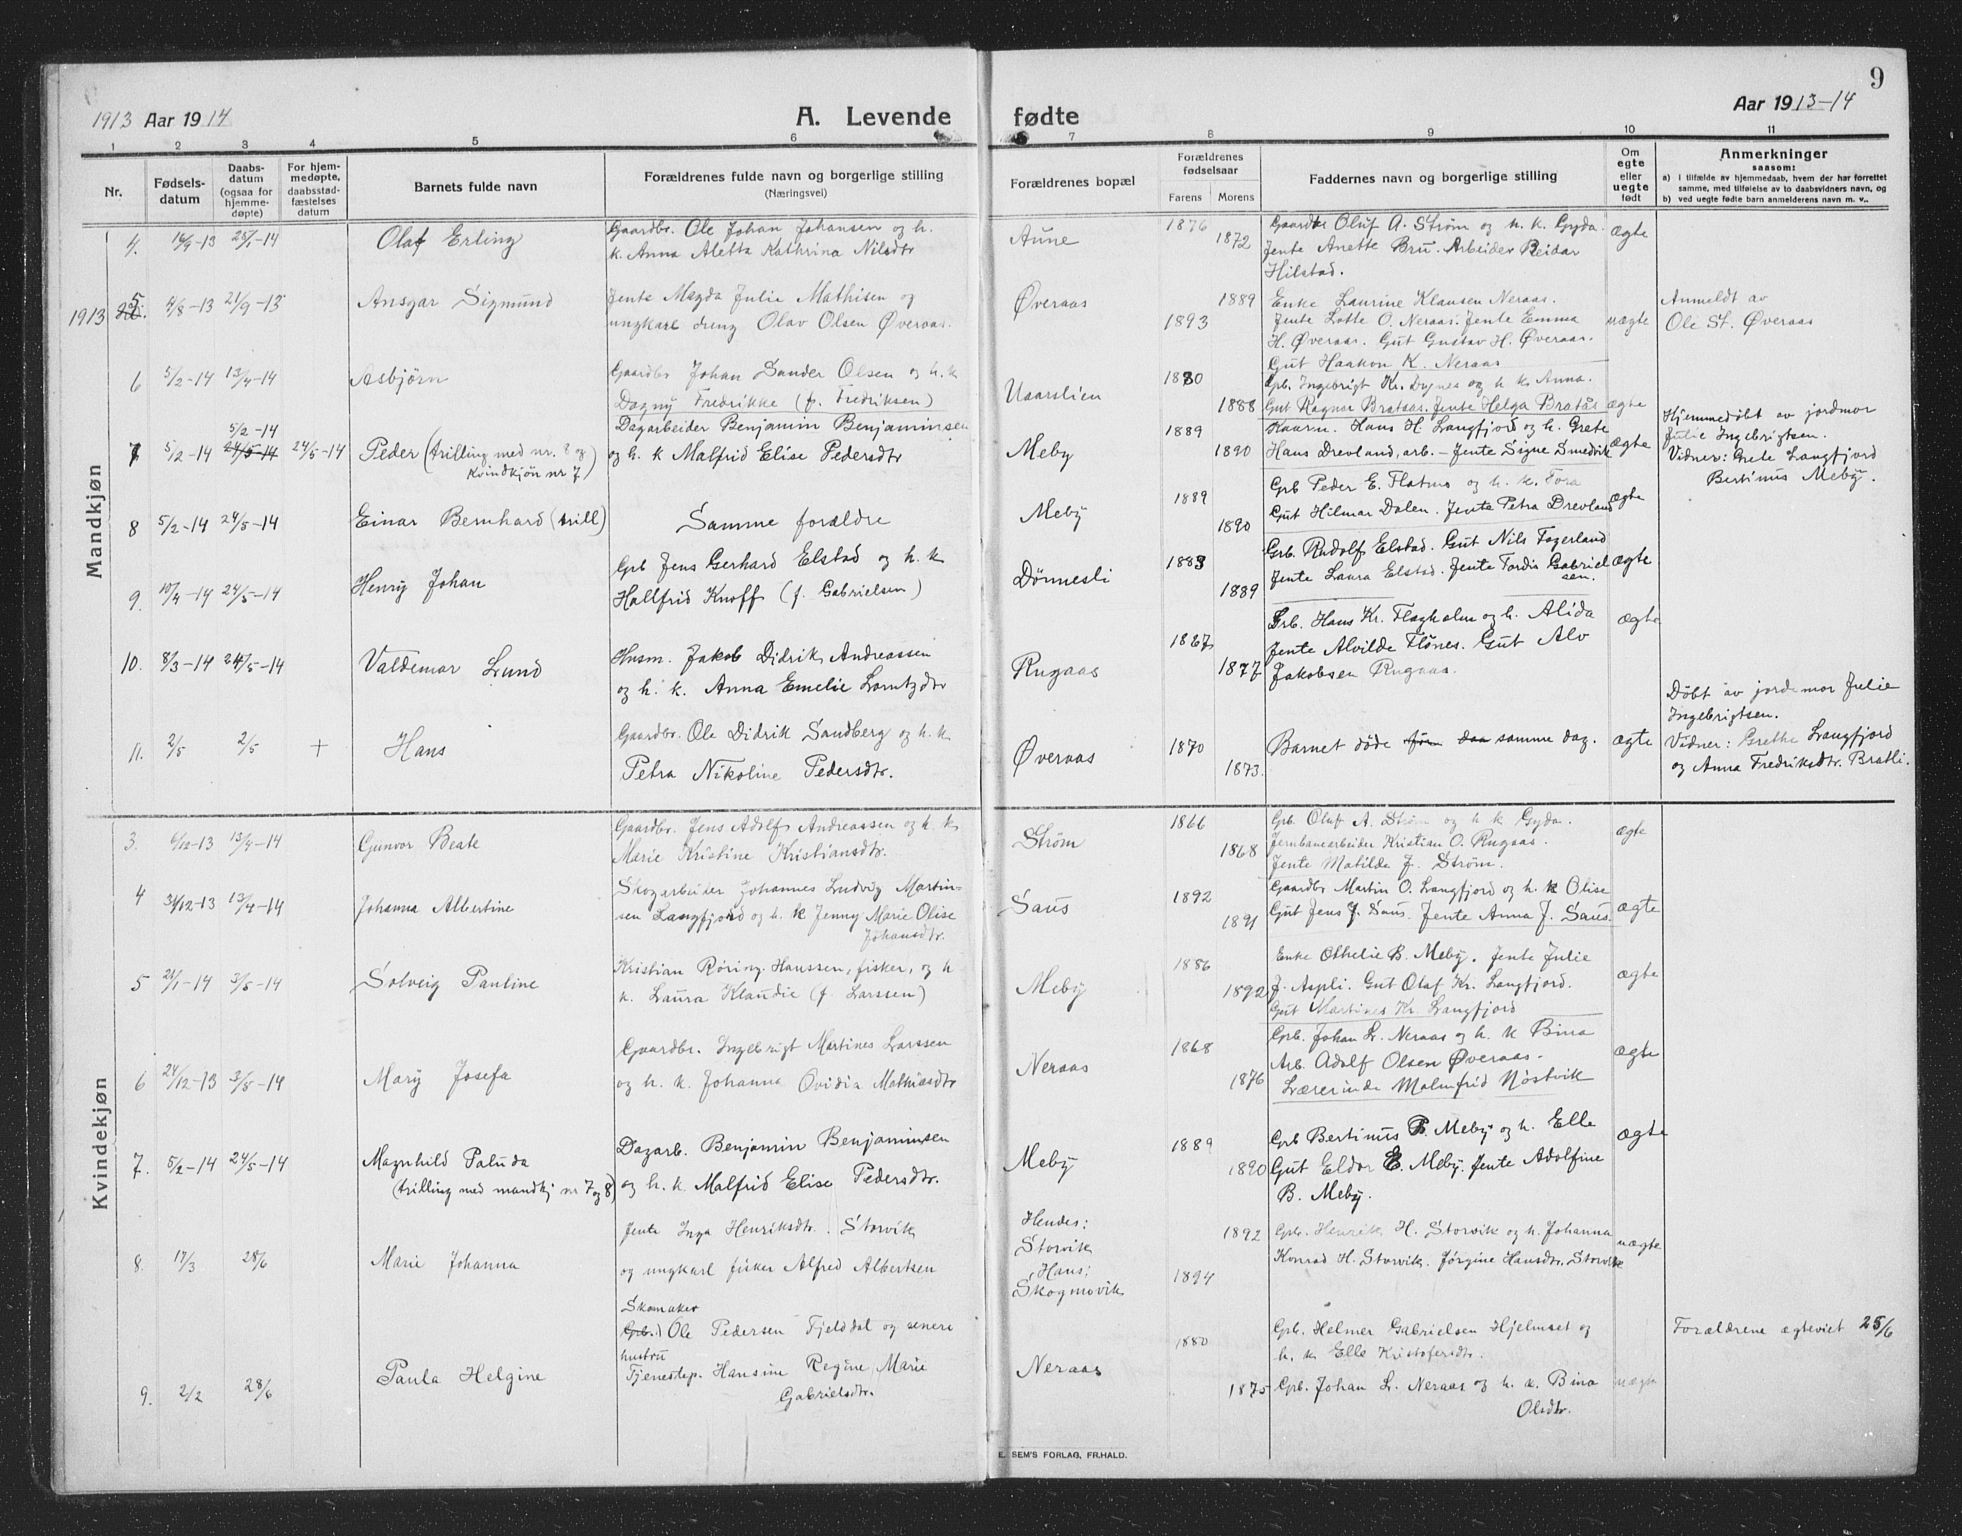 9
1913 Aar 1914 A. Levende fødte Aar 1913-14
1 2 3 4 5 6 7 8 9 10 11
Nr. Fødsels-datum Daabs-datum (ogsaa for hjemme-døpte) For hjem-medøpte, daabsstad-fæstelses datum Barnets fulde navn Forældrenes fulde navn og borgerlige stilling (Næringsvei) Forældrenes bopæl Forældrenes fødselsaar Farens Morens Faddernes navn og borgerlige stilling Om egte eller uegte født Anmerkninger saasom:
a) I tilfælde av hjemmedaab, hvem der har forrettet samme, med tilføielse av to daabsvidners navn, og
b) ved uegte fødte barn anmelderens navn m. v..
Mandkjøn
4. 25/1-14 Olaf Erling Gaardbr. Ole Johan Johansen og h. Aune 1876 Oluf A. Strøm og h. k. Gyda. ægte
k. Anna Aletta Kathrina Nilsdtr 1872 Jente Anette Bru. Arbeider Reidar
Hilstad.
1913 5. 4/8-13 21/9-13 Ansgar Sigmund Jente Magda Julie Mathisen og Øveraas 1889 Enke Laurine Klausen Neraas. Anmeldt av
ungkarl dreng Olav Olsen Øveraas. 1893 Jente Lotte O. Neraas. Jente Emma uægte Ole St. Øveraas
H. Øveraas. Gut Gustav H. Øveraas.
Gut Haakon K. Neraas
6 5/2-14 13/4-14 Asbjørn Gaardbr Johan Sander Olsen og h. k Uaarslien 1880 Grb. Ingebrigt Kr. Dynes og h k Anna.
Dagny Fredrikke (f. Fredriksen) 1888 Gut Ragnar Brataas. Jente Helga Bratås ægte
5/2-14 Dagarbeider Benjamin Benjaminsen 1889 Hans H. Langfjord og h. Grete Hjemmedøbt av jordmor
7 5/2-14 24/5-14 24/5-14 Peder (trilling med nr. 8 og og h. k Malfrid Elise Pedersdtr Meby 1890 Hans Drevland, arb. – Jente Signe Smedvik ægte Julie Ingebrigtsen.
kvindkjön nr 7) Vidner: Grete Langfjord
Bertinus Meby.
8 5/2-14 24/5-14 Einar Bernhard (trill) Samme forældre Meby 1889 Grb Peder E. Flatmo og h. k. Tora ægte
1890 Gut Hilmar Dalen. Jente Petra Drevland
9. 10/4-14 24/5-14 Henry Johan Grb Jens Gerhard Elstad og h. k Dönnesli 1883 Grb. Rudolf Elstad. Gut Nils Fagerland
Hallfrid Knoff (f. Gabrielsen) 1889 Jente Laura Elstad. Jente Tordis Gabriel ægte
sen.
10. 8/3-14 24/5-14 Valdemar Lund Husm. Jakob Didrik Andreassen Rugaas 1867 Grb. Hans Kr. Flagholm og h. Alida ægte
og h. k. Anna Emelie Lorntzdtr 1877 Jente Alvilde Flönes. Gut Alv
Jakobsen Rugaas.
11. 2/5 2/5 + Hans Gaardbr. Ole Didrik Sandberg og h. k Øveraas 1870 Barnet döde før daa samme dag. ægte Döbt av jordemor Julie
Petra Nikoline Pedersdtr. 1873. Ingebrigtsen.
Vidner: Grethe Langfjord
og Anna Fredriksdtr. Bratli.
Kvindekjøn
3. 6/12-13 13/4-14 Gunvor Beate Gaardbr. Jens Adolf Andreassen og h. k Strøm 1866 Grb. Oluf A. Strøm og h k Gyda. ægte
Marie Kristine Kristiansdtr. 1868 Jernbanearbeider Kristian O. Rugaas.
Jente Matilde J. Strøm.
4 31/12-13 13/4-14 Johanna Albertine Skogarbeider Johannes Ludvig Martin- Saus 1892 Gaardbr Martin O. Langfjord og h. k Olise ægte
sen Langfjord og h. k Jenny Marie Olise 1891 Gut Jens J. Saus. Jente Anna J. Saus.
Johansdtr.
5 21/1-14 3/5-14 Solveig Pauline Kristian Røring Hanssen, fisker, og h Meby 1886 Enke Othelie B. Meby. Jente Julie ægte
k. Laura Klaudie (f. Larssen) 1892 J. Aspli. Gut Olaf Kr. Langfjord.
Gut Martines Kr. Langfjord
6 24/12-13 3/5-14 Mary Josefa Gaardbr. Ingebrigt Martines Larssen Neraas 1868 Grb. Johan L. Neraas og h. k Bina ægte
og h. k. Johanna Ovidia Mathiasdtr 1876 Arb. Adolf Olsen Øveraas.
Lærerinde Malmfrid Nöstvik
7. 5/2-14 24/5-14 Magnhild Paluda Dagarb. Benjamin Benjaminsen Meby 1889 Grb Bertinus P. Meby og h. Elle ægte
(trilling med mandkj nr 7 og 8) og h. k. Malfrid Elise Pedersdtr. 1890 Gut Eldor E. Meby. Jente Adolfine
B. Meby.
8. 17/3 28/6 Marie Johanna Jente Inga Henriksdtr. Storvik Hendes: Storvik 1892 Grb. Henrik H. Storvik og h. Johanna uægte
og ungkarl fisker Alfred Albertsen Hans: Skogmovik 1894 Konrad H. Storvik. Jørgine Hansdtr. Storvik
Skomaker
9. 2/2 28/6 Paula Helgine (Grb.) Ole Pedersen Fjelddal og senere Neraas 1880 Grb. Helmer Gabrielsen Hjelmset og Forældrene ægteviet 25/6
hustru h. k Elle Kristofersdtr.
Tjenestep. Hansine Regine Marie 1875 Grb. Johan L. Neraas og h. k. Bina uægte
Gabrielsdtr. Olsdtr.
E. SEM'S FORLAG, FR.HALD.